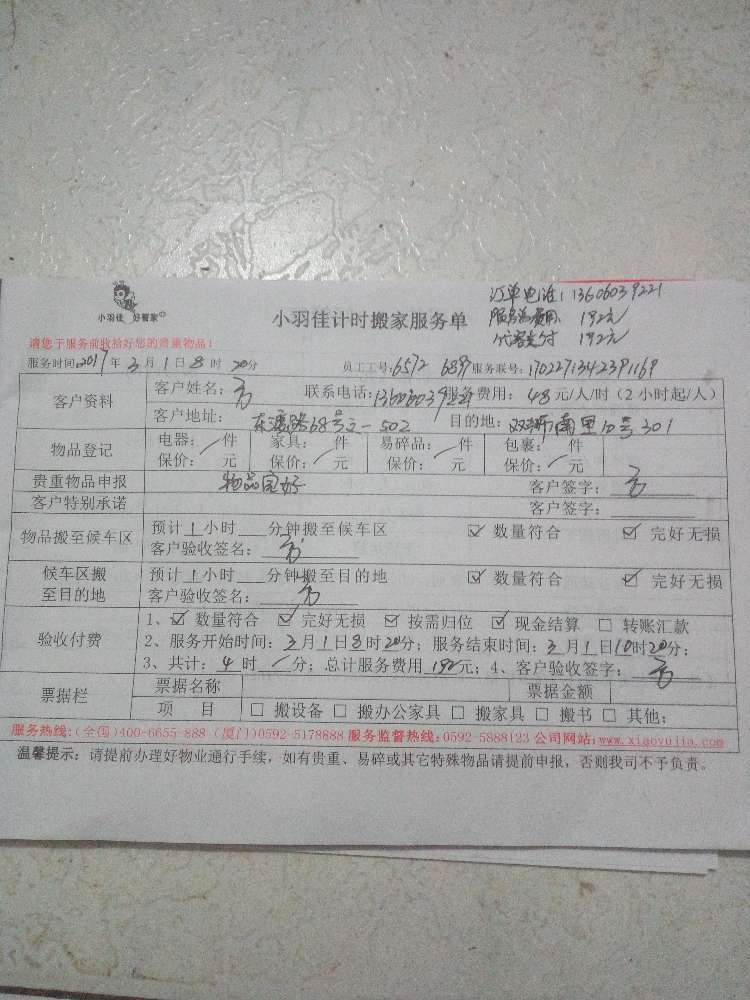 订单电话：13606039221
服务总费用 192元
代客支付 192元
小羽佳 好管家
小羽佳计时搬家服务单
请您于服务前收拾好您的贵重物品！
服务时间2017年3月1日8时20分 员工工号：6572 6897 服务联号：1702271342391169
客户资料
客户姓名： 联系电话：13606039221 服务费用：48元/人/时（2小时起/人）
客户地址：东渡路68号之一502 目的地：双浙南里10号301
物品登记
电器：/件 家具：/件 易碎品：/件 包裹：/件
保价：/元 保价：/元 保价：/元 保价：/元
贵重物品申报 物品完好 客户签字：
客户特别承诺 客户签字：
物品搬至候车区
预计1小时___分钟搬至候车区 ☑ 数量符合 ☑ 完好无损
客户验收签名：
候车区搬至目的地
预计1小时___分钟搬至目的地 ☑ 数量符合 ☑ 完好无损
客户验收签名：
验收付费
1、☑ 数量符合 ☑ 完好无损 ☑ 按需归位 ☑ 现金结算 □ 转账汇款
2、服务开始时间：3月1日8时20分；服务结束时间：3月1日10时20分；
3、共计：4时/分；总计服务费用192元；4、客户验收签字：
票据栏
票据名称 票据金额
项 目 □ 搬设备 □ 搬办公家具 □ 搬家具 □ 搬书 □ 其他：
服务热线：(全国)400-6655-888 (厦门)0592-5178888 服务监督热线：0592-5888123 公司网站：www.xiaoyujia.com
温馨提示：请提前办理好物业通行手续，如有贵重、易碎或其它特殊物品请提前申报，否则我司不予负责。